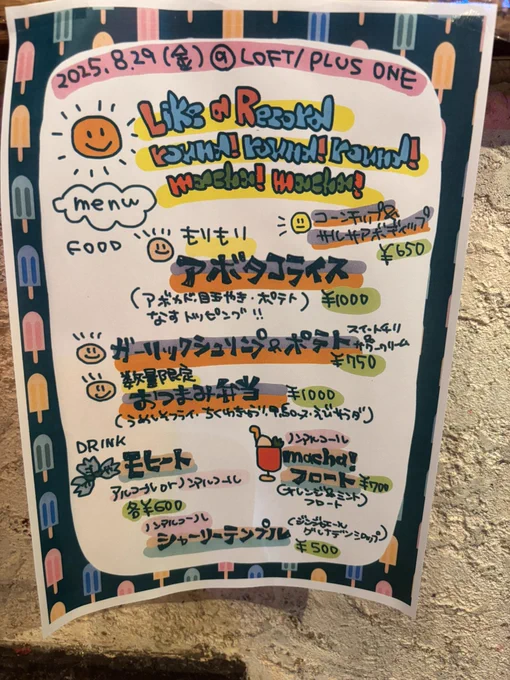 2025.8.29(金)@LOFT/PLUS ONE
Like a Record
round! round! round!
macha! macha!
menu
FOOD
コーンチップ&
サルサアボディップ
¥650
もりもり
アボタコライス
(アボカド・目玉やき・ポテト
なすトッピング!!)
¥1000
ガーリックシュリンプ&ポテト
スイートチリ
&
サワークリーム
¥750
数量限定
おつまみ弁当
¥1000
(うめしそフライ・ちくわ
DRINK
モヒート
アルコール or ノンアルコール
各¥600
ノンアルコール
macha!
フロート
¥700
(オレンジ&ミント
フロート)
ノンアルコール
シャーリーテンプル
(ジンジャエール
グレナデンシロップ)
¥500